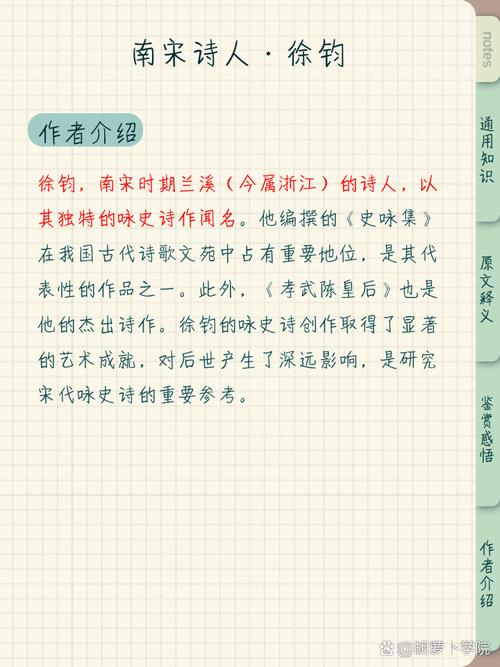 南宋诗人·徐钧
作者介绍
徐钧，南宋时期兰溪（今属浙江）的诗人，以
其独特的咏史诗作闻名。他编撰的《史咏集》
在我国古代诗歌文苑中占有重要地位，是其代
表性的作品之一。此外，《孝武陈皇后》也是
他的杰出诗作。徐钧的咏史诗创作取得了显著
的艺术成就，对后世产生了深远影响，是研究
宋代咏史诗的重要参考。
notes
通用知识
原文释义
鉴赏感悟
作者介绍
胡萝卜学院